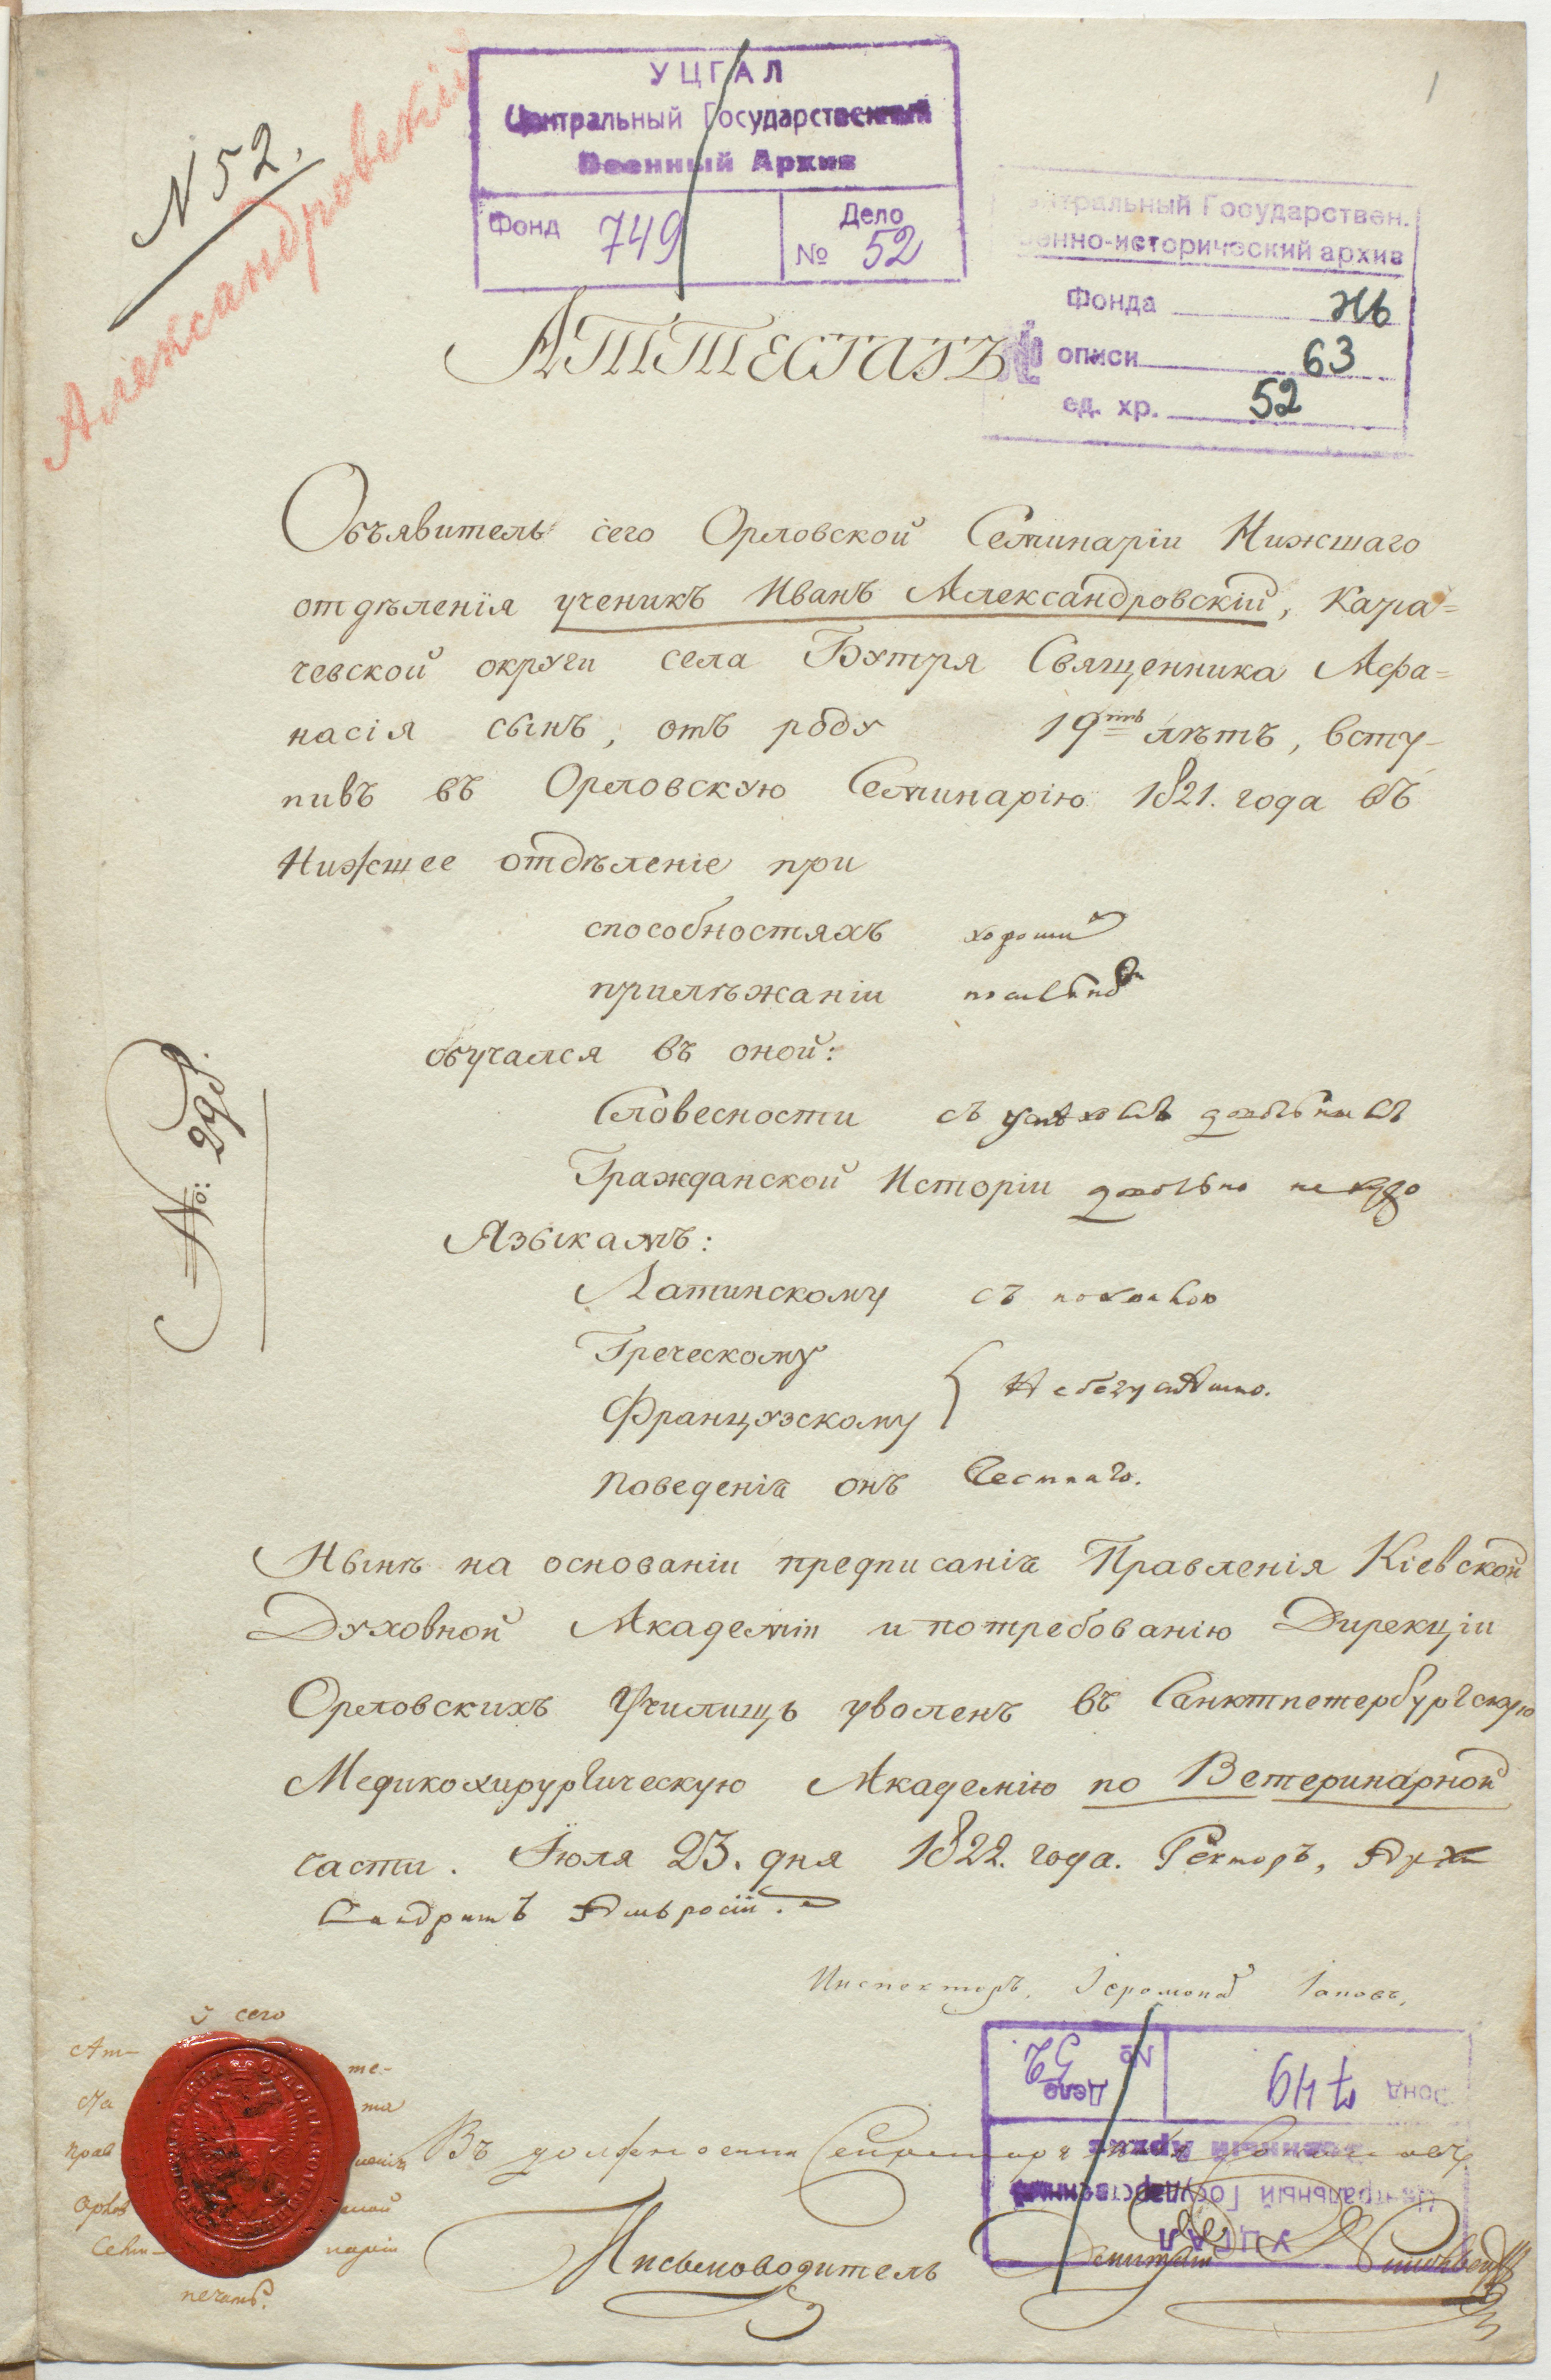 1
N 52.
Александровскій
УЦГАЛ
Центральный Государственный
Военный Архив
Фонд 749
Дело
№ 52
нтральный Государствен.
енно-исторический архив
Фонда
описи 63
ед. хр. 52
Аттестатъ
Объявитель сего Орловской Семинаріи Нижшаго
отдѣленія ученикъ Иванъ Александровскій, Кара=
чевской округи села Бутря Священника Афа=
насія сынъ, отъ роду 19ть лѣтъ, всту-
пивъ въ Орловскую Семинарію 1821. года въ
Нижшее отдѣленіе при
способностяхъ хороши
прилѣжаніи
обучался въ оной:
Словесности съ успѣхомъ довольнымъ
Гражданской Исторіи довольно не худо
Языкамъ:
Латинскому съ похвалою
Греческому
Французскому
Небезуспѣшно.
Поведенія онъ Честнаго.
№: 298.
Нынѣ на основаніи предписанія Правленія Кіевской
Духовной Академіи и потребованію Дирекціи
Орловскихъ Училищъ уволенъ въ Санктпетербургскую
Медикохирургическую Академію по Ветеринарной
части. Іюля 23. дня 1822. года. Ректоръ, Архи
мандритъ Амвросій.
Инспекторъ, Іеромонах
У сего
Ат- те-
ста та
Прав ленія
Орлов ской
Семи- наріи
печать.
Въ должности Секретаря
Письмоводитель
Фонд 749
Дело
№ 52
Центральный Государственный
Военный Архив
УЦГАЛ